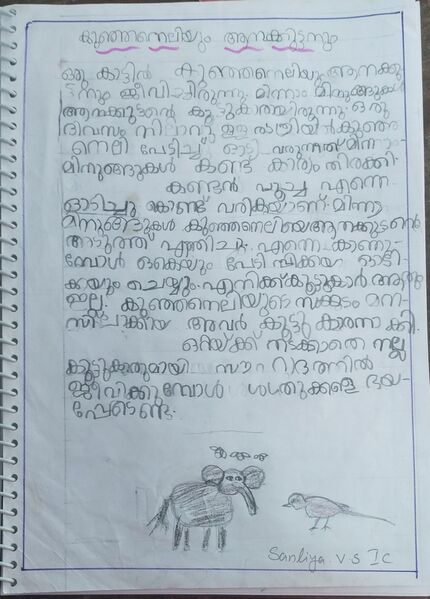 കുഞ്ഞനെലിയും ആനക്കുട്ടനും
ഒരു കാട്ടിൽ കുഞ്ഞനെലിയും ആനക്കു
ട്ടനും ജീവിച്ചിരുന്നു. മിന്നാം മിനുങ്ങുകൾ
ആനക്കുട്ടന്റെ കൂട്ടുകാരായിരുന്നു. ഒരു
ദിവസം നിലാവു ള്ള രാത്രിയിൽ കുഞ്ഞ
നെലി പേടിച്ച് ഓടി വരുന്നത് മിന്നാം
മിനുങ്ങുകൾ കണ്ട് കാര്യം തിരക്കി.
കണ്ടൻ പൂച്ച എന്നെ
ഓടിച്ചു കൊണ്ട് വരികയാണ്. മിന്നാ
മിനുങ്ങുകൾ കുഞ്ഞനെലിയെ ആനക്കുട്ടന്റെ
അടുത്ത് എത്തിച്ചു. എന്നെ കാണു
മ്പോൾ ഒകെയും പേടിപ്പിക്കയ ഓടി
ക്കയും ചെയ്യും. എനിക്ക് കൂട്ടുകാർ ആരും
ഇല്ല. കുഞ്ഞനെലിയുടെ സങ്കടം മന
സിലാക്കിയ അവർ കൂട്ടു കാരനാ ക്കി.
ഒറ്റയ്ക്ക് നടക്കാതെ നല്ല
കൂട്ടുകരുമായി സൗഹൃദത്തിൽ
ജീവിക്കുമ്പോൾ ശത്രുക്കളെ ഭയ
പ്പേടേണ്ട.
Sanliya v s I C